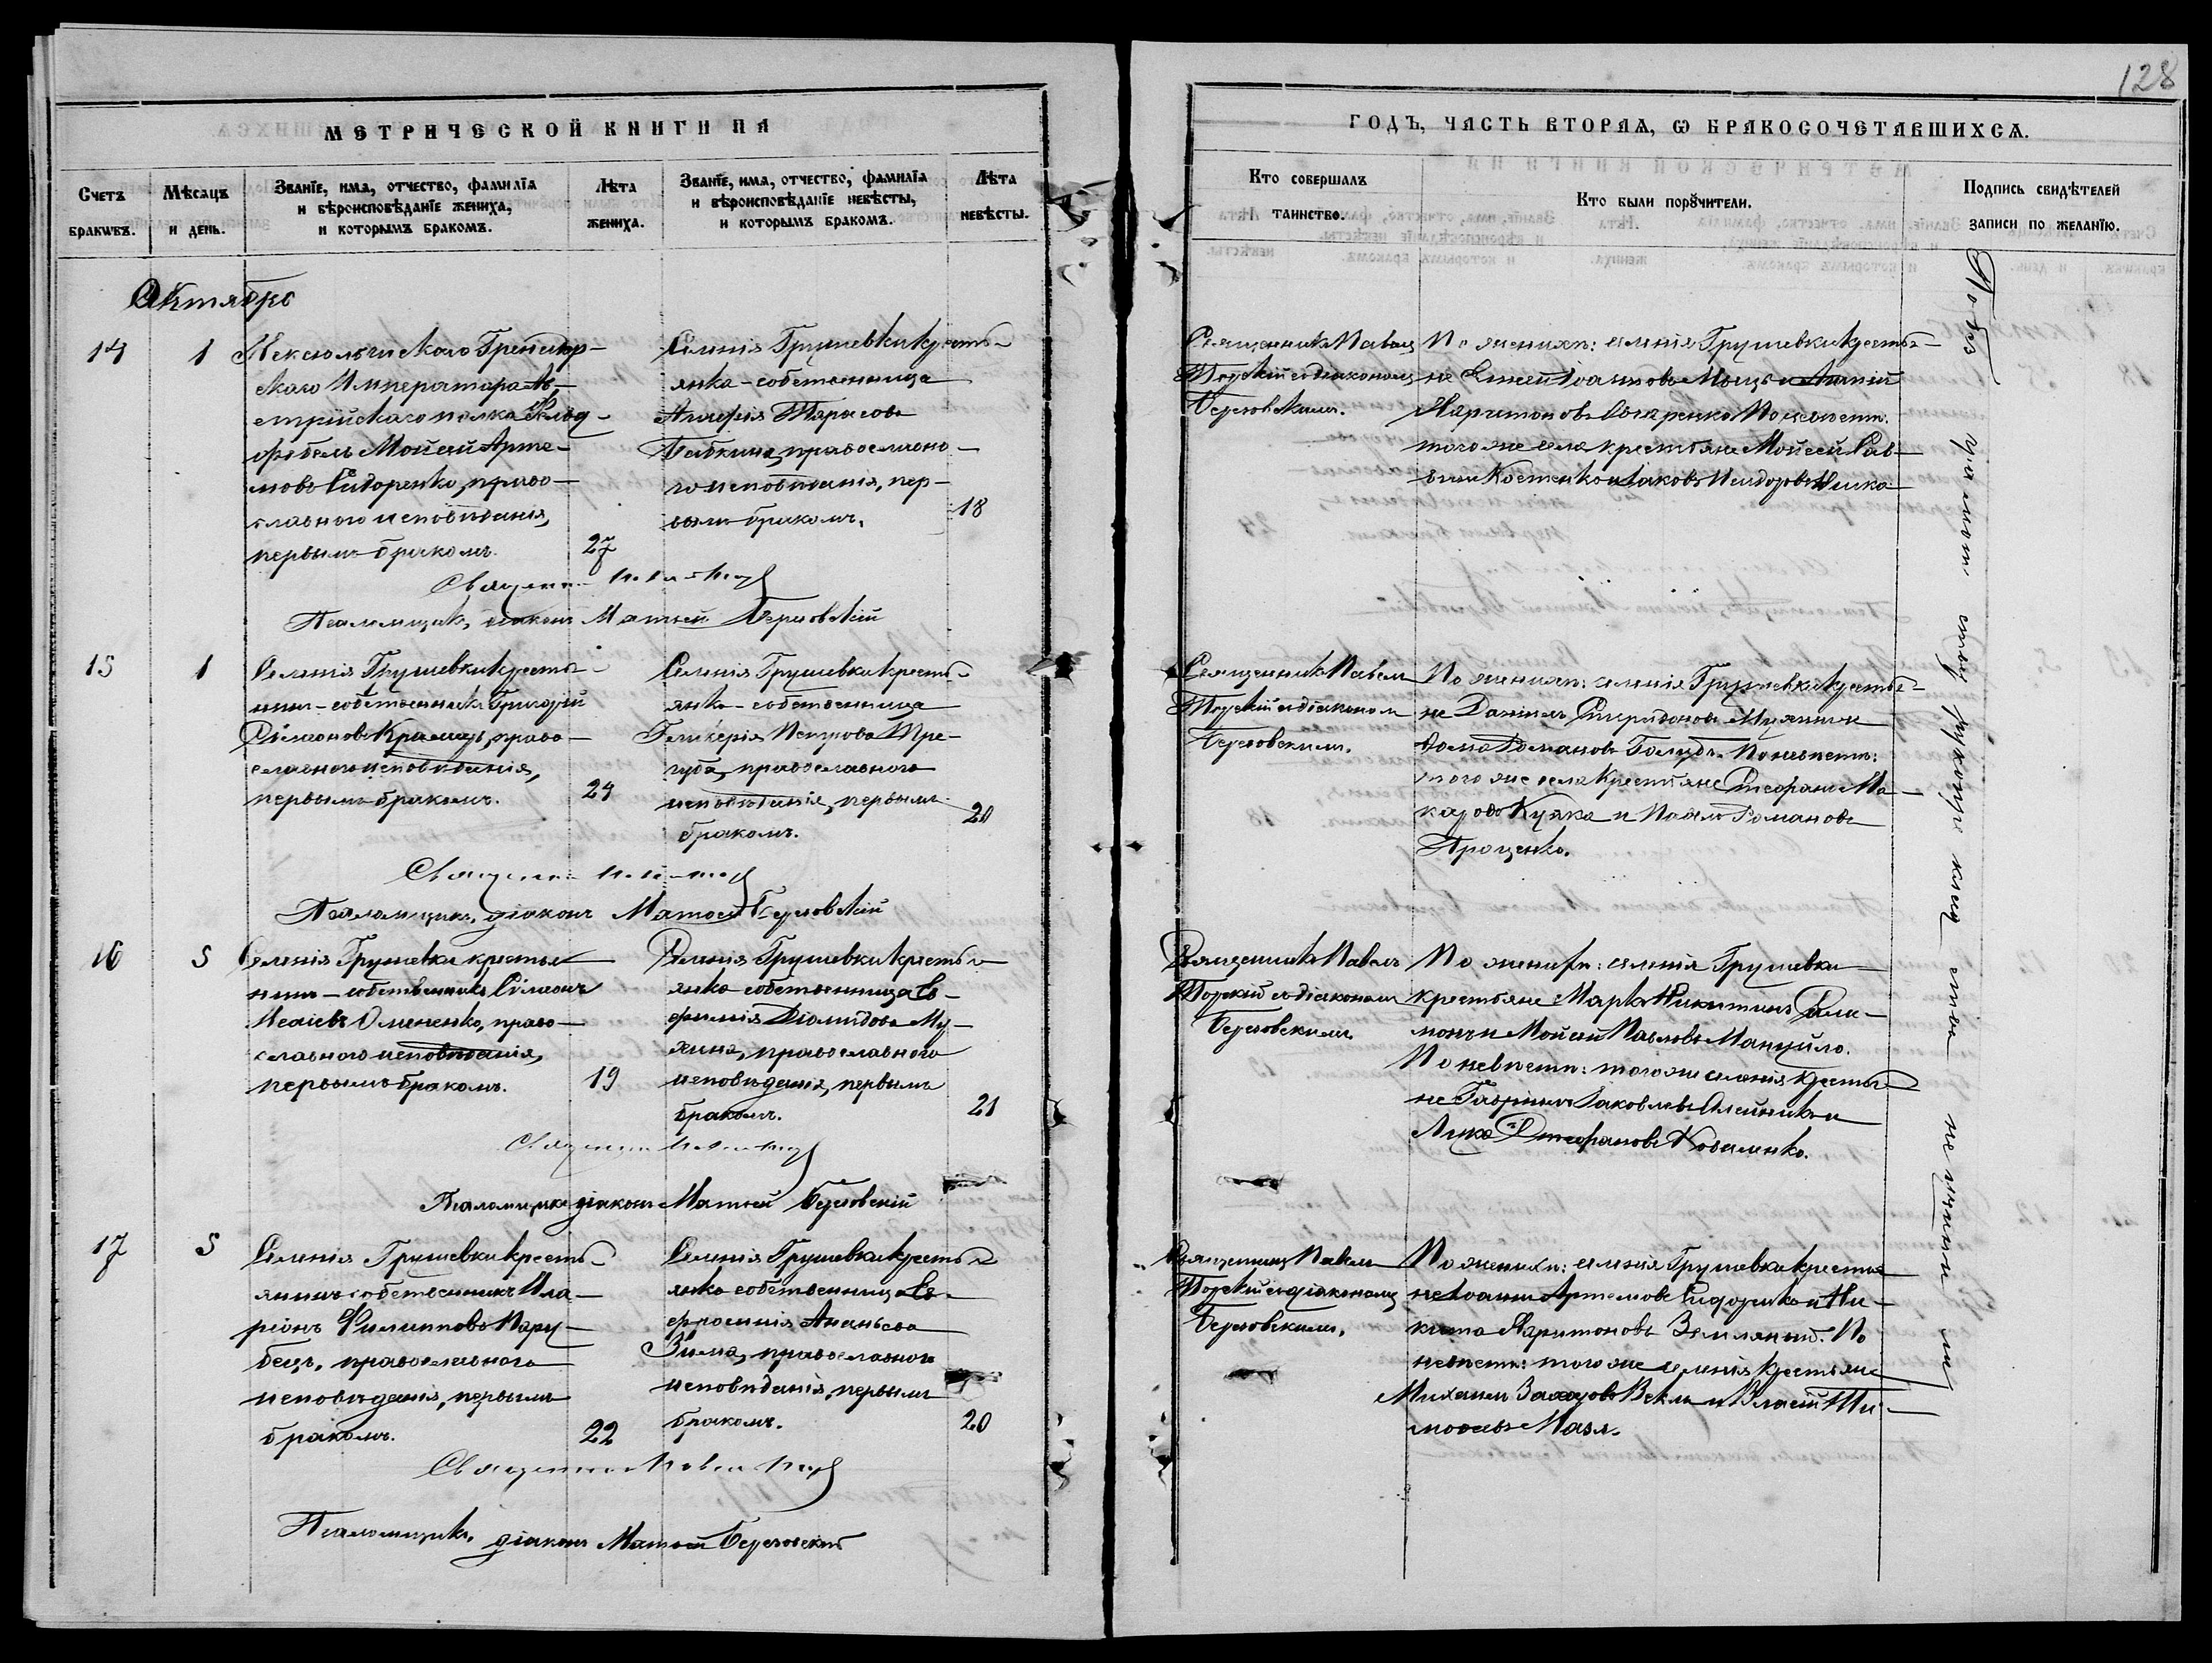 128
МЕТРИЧЕСКОЙ КНИГИ НА
ГОДЪ, ЧАСТЬ ВТОРАѦ, Ѡ БРАКОСОЧЕТАВШИХСѦ.
Счетъ браковъ.
Мѣсяцъ и день.
Званїе, имѧ, отчество, фамилїѧ и вѣроисповѣданїе жениха, и которымъ бракомъ.
Лѣта жениха.
Званїе, имѧ, отчество, фамилїѧ и вѣроисповѣданїе невѣсты, и которымъ бракомъ.
Лѣта невѣсты.
Кто совершалъ таинство.
Кто были порꙋчители.
Подпись свидѣтелей записи по желанїю.
Октябрь
14
1
Кексгольмскаго Гренадер-
скаго Императора Ав-
стрійскаго полка Фельд-
фебель Мойсей Арте-
мовъ Сидоренко, право-
славного исповѣданія,
первымъ бракомъ.
27
Селенія Грушевки кресть-
янка-собственница
Тарасова
Бабкина, православно-
го исповѣданія, пер-
вымъ бракомъ.
18
Священникъ Павелъ
Торскій съ діакономъ
Березовскимъ.
По женихѣ: селенія Грушевки крестья-
не Іоанновъ и
Харитоновъ По невѣстѣ:
того же села крестьяне Мойсей Сав-
винъ Костенко и Іаковъ
Священникъ Павелъ
Псаломщикъ, діаконъ Матѳей Березовскій
15
1
Селенія Грушевки кресть-
нинъ-собственникъ Григорій
Симеоновъ право-
славного исповѣданія,
первымъ бракомъ.
24
Селенія Грушевки кресть-
янка-собственница
Гликерія Петрова Тре-
губа, православного
исповѣданія, первымъ
бракомъ.
20
Священникъ Павелъ
Торскій съ діакономъ
Березовскимъ.
По женихѣ: селенія Грушевки крестья-
не Даніилъ Спиридоновъ
Романовъ Голубъ. По невѣстѣ:
того же села крестьяне Стефанъ Ма-
каровъ и Павелъ Романовъ
Проценко.
Священникъ Павелъ
Псаломщикъ, діаконъ Матѳей Березовскій
16
5
Селенія Грушевки крестья-
нинъ-собственникъ Симеонъ
Исаіевъ право-
славного исповѣданія,
первымъ бракомъ.
19
Селенія Грушевки крестья-
янка собственница Ев-
фимія Діомидова Му-
хина, православного
исповѣданія, первымъ
бракомъ.
21
Священникъ Павелъ
Торскій съ діакономъ
Березовскимъ.
По женихѣ: селенія Грушевки
крестьяне Маркъ Никитинъ
и Мойсей Павловъ Мануйло.
По невѣстѣ: того же селенія крестья-
не Гавріилъ Іаковлевъ Олейникъ и
Лука Стефановъ Коваленко.
Священникъ Павелъ
Псаломщикъ діаконъ Матѳей Березовскій
17
5
Селенія Грушевки кресть-
янинъ собственникъ Ила-
ріонъ Филипповъ Пару-
бецъ, православного
исповѣданія, первымъ
бракомъ.
22
Селенія Грушевки кресть-
янка собственница Ев-
фросинія Ананьева
Зима, православного
исповѣданія, первымъ
бракомъ.
20
Священникъ Павелъ
Торскій съ діакономъ
Березовскимъ.
По женихѣ: селенія Грушевки крестья-
не Іоаннъ Артемовъ Сидоренко и Ни-
кита Харитоновъ Земляный. По
невѣстѣ: того же селенія крестьяне
Михаилъ Захаровъ и Власій Ти-
Священникъ Павелъ
Псаломщикъ, діаконъ Матѳей Березовскій